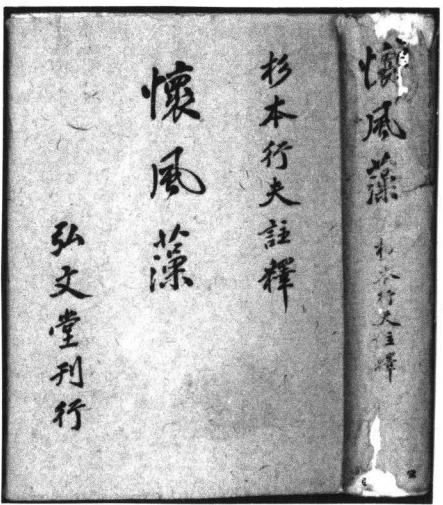 懷風藻
杉本行夫註釋
杉本行夫註釋
懷風藻
弘文堂刊行